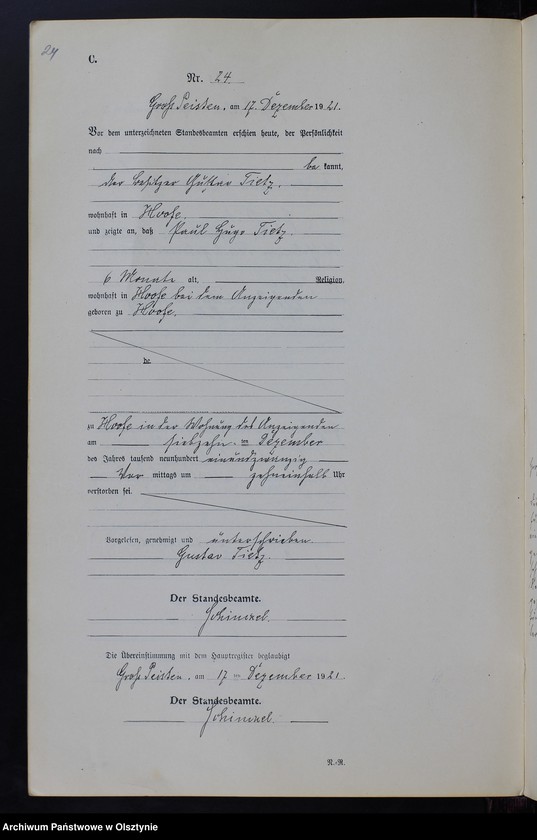 24
C.
Nr. 24.
Groß Peisten, am 17. Dezember 1921.
Vor dem unterzeichneten Standesbeamten erschien heute, der Persönlichkeit
nach
be kannt,
der Besitzer Gustav Tietz,
wohnhaft in Hoofe,
und zeigte an, daß Paul Hugo Tietz,
6 Monate alt, Religion,
wohnhaft in Hoofe bei dem Anzeigenden
geboren zu Hoofe,
de
zu Hoofe in der Wohnung des Anzeigenden
am siebzehn ten Dezember
des Jahres tausend neunhundert einundzwanzig
Vor mittags um zehneinhalb Uhr
verstorben sei.
Vorgelesen, genehmigt und unterschrieben
Gustav Tietz.
Der Standesbeamte.
Die Übereinstimmung mit dem Hauptregister beglaubigt
Groß Peisten, am 17 ten Dezember 1921.
Der Standesbeamte.
R.-R.
Archiwum Państwowe w Olsztynie